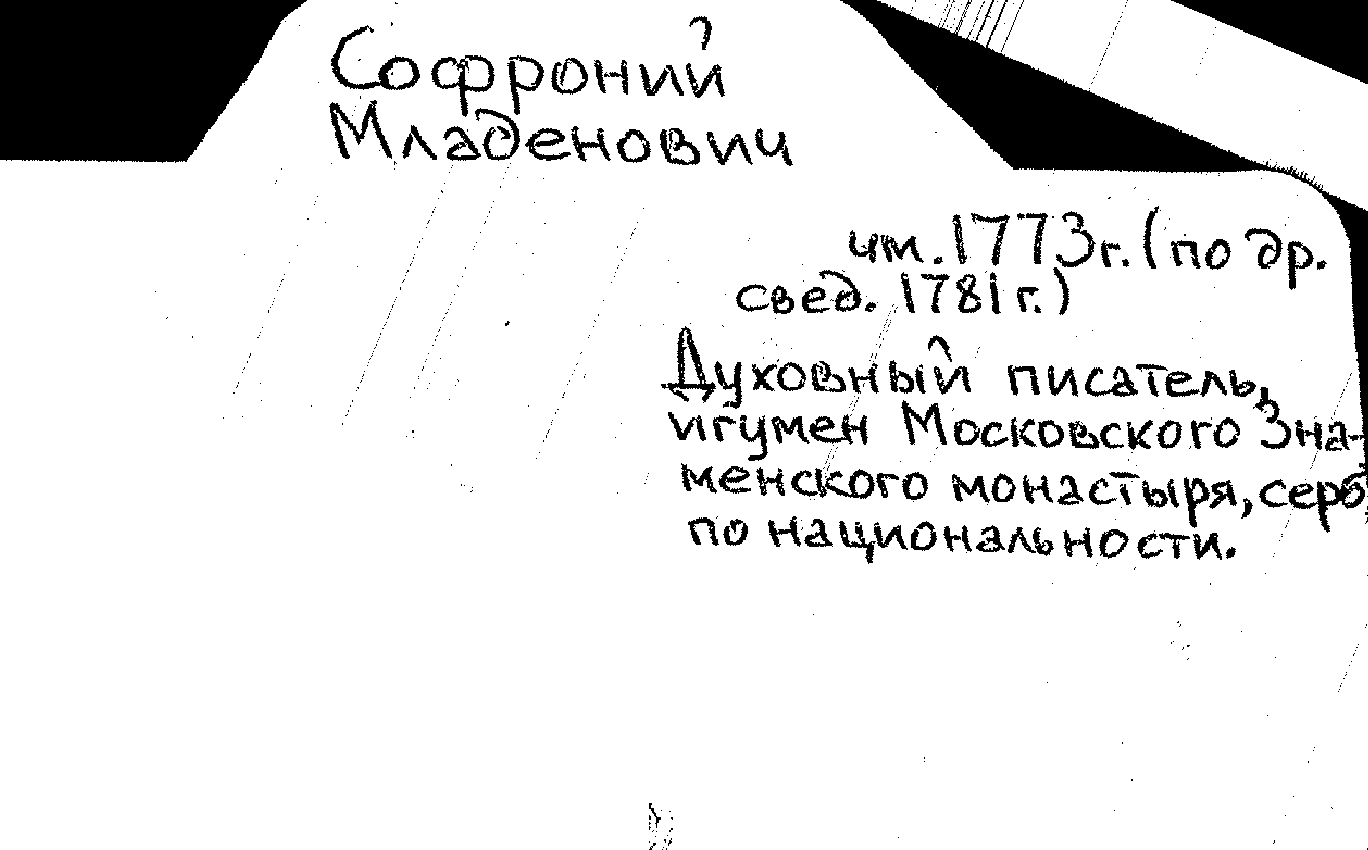 Софроний
Младенович
ум. 1773 г. (по др.
свед. 1781 г.)
Духовный писатель,
игумен Московского Зна-
менского монастыря, серб
по национальности.